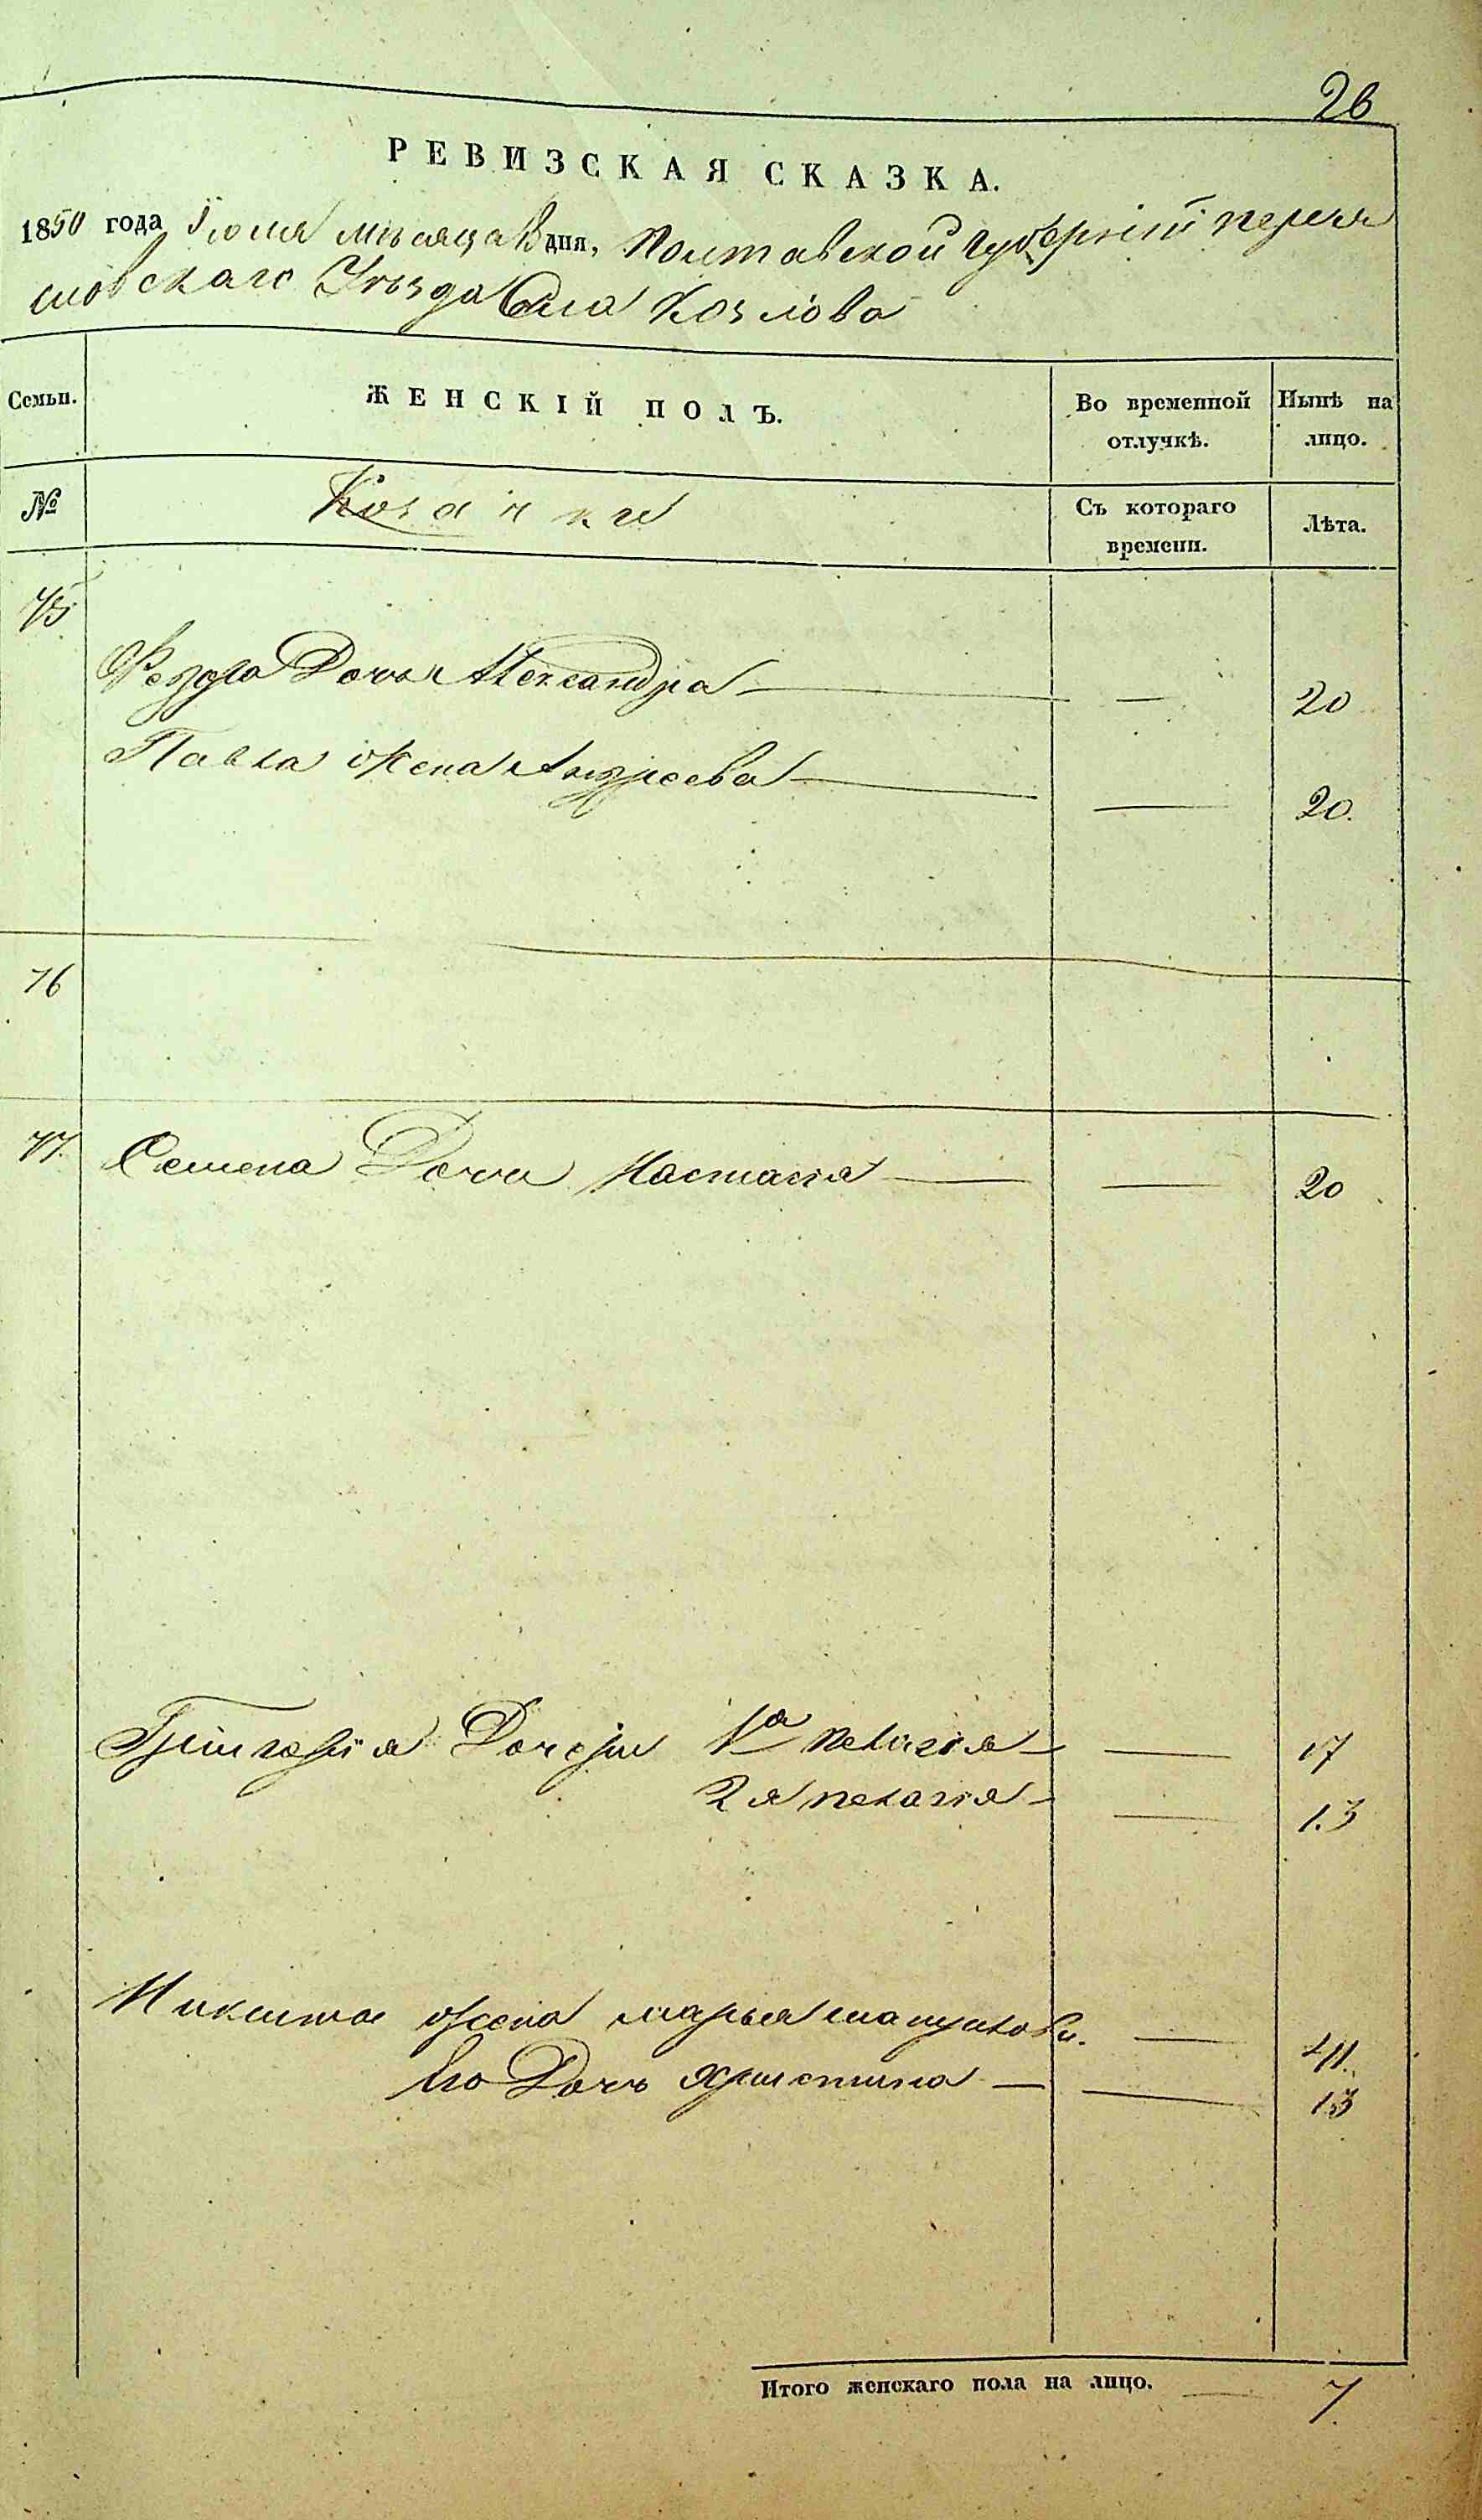 26
РЕВИЗСКАЯ СКАЗКА.
1850 года Іюля мѣсяца 18 дня, Полтавской губерніи Перея
словскаго Уѣзда Села Козлова
Семьи. ЖЕНСКІЙ ПОЛЪ. Во временной отлучкѣ. Нынѣ на лицо.
№ Козачки Съ котораго времени. Лѣта.
75
Федора Дочь Александра — — 20
Павла жена Андреева — — 20.
76
77. Семена Дочь Настасія — — 20
Григорія Дочери 1я Пелагія — — 17
2я пелагія — — 13
Никиты жена марья — 41.
Его Дочь Христина — — 13
Итого женскаго пола на лицо. — 7.